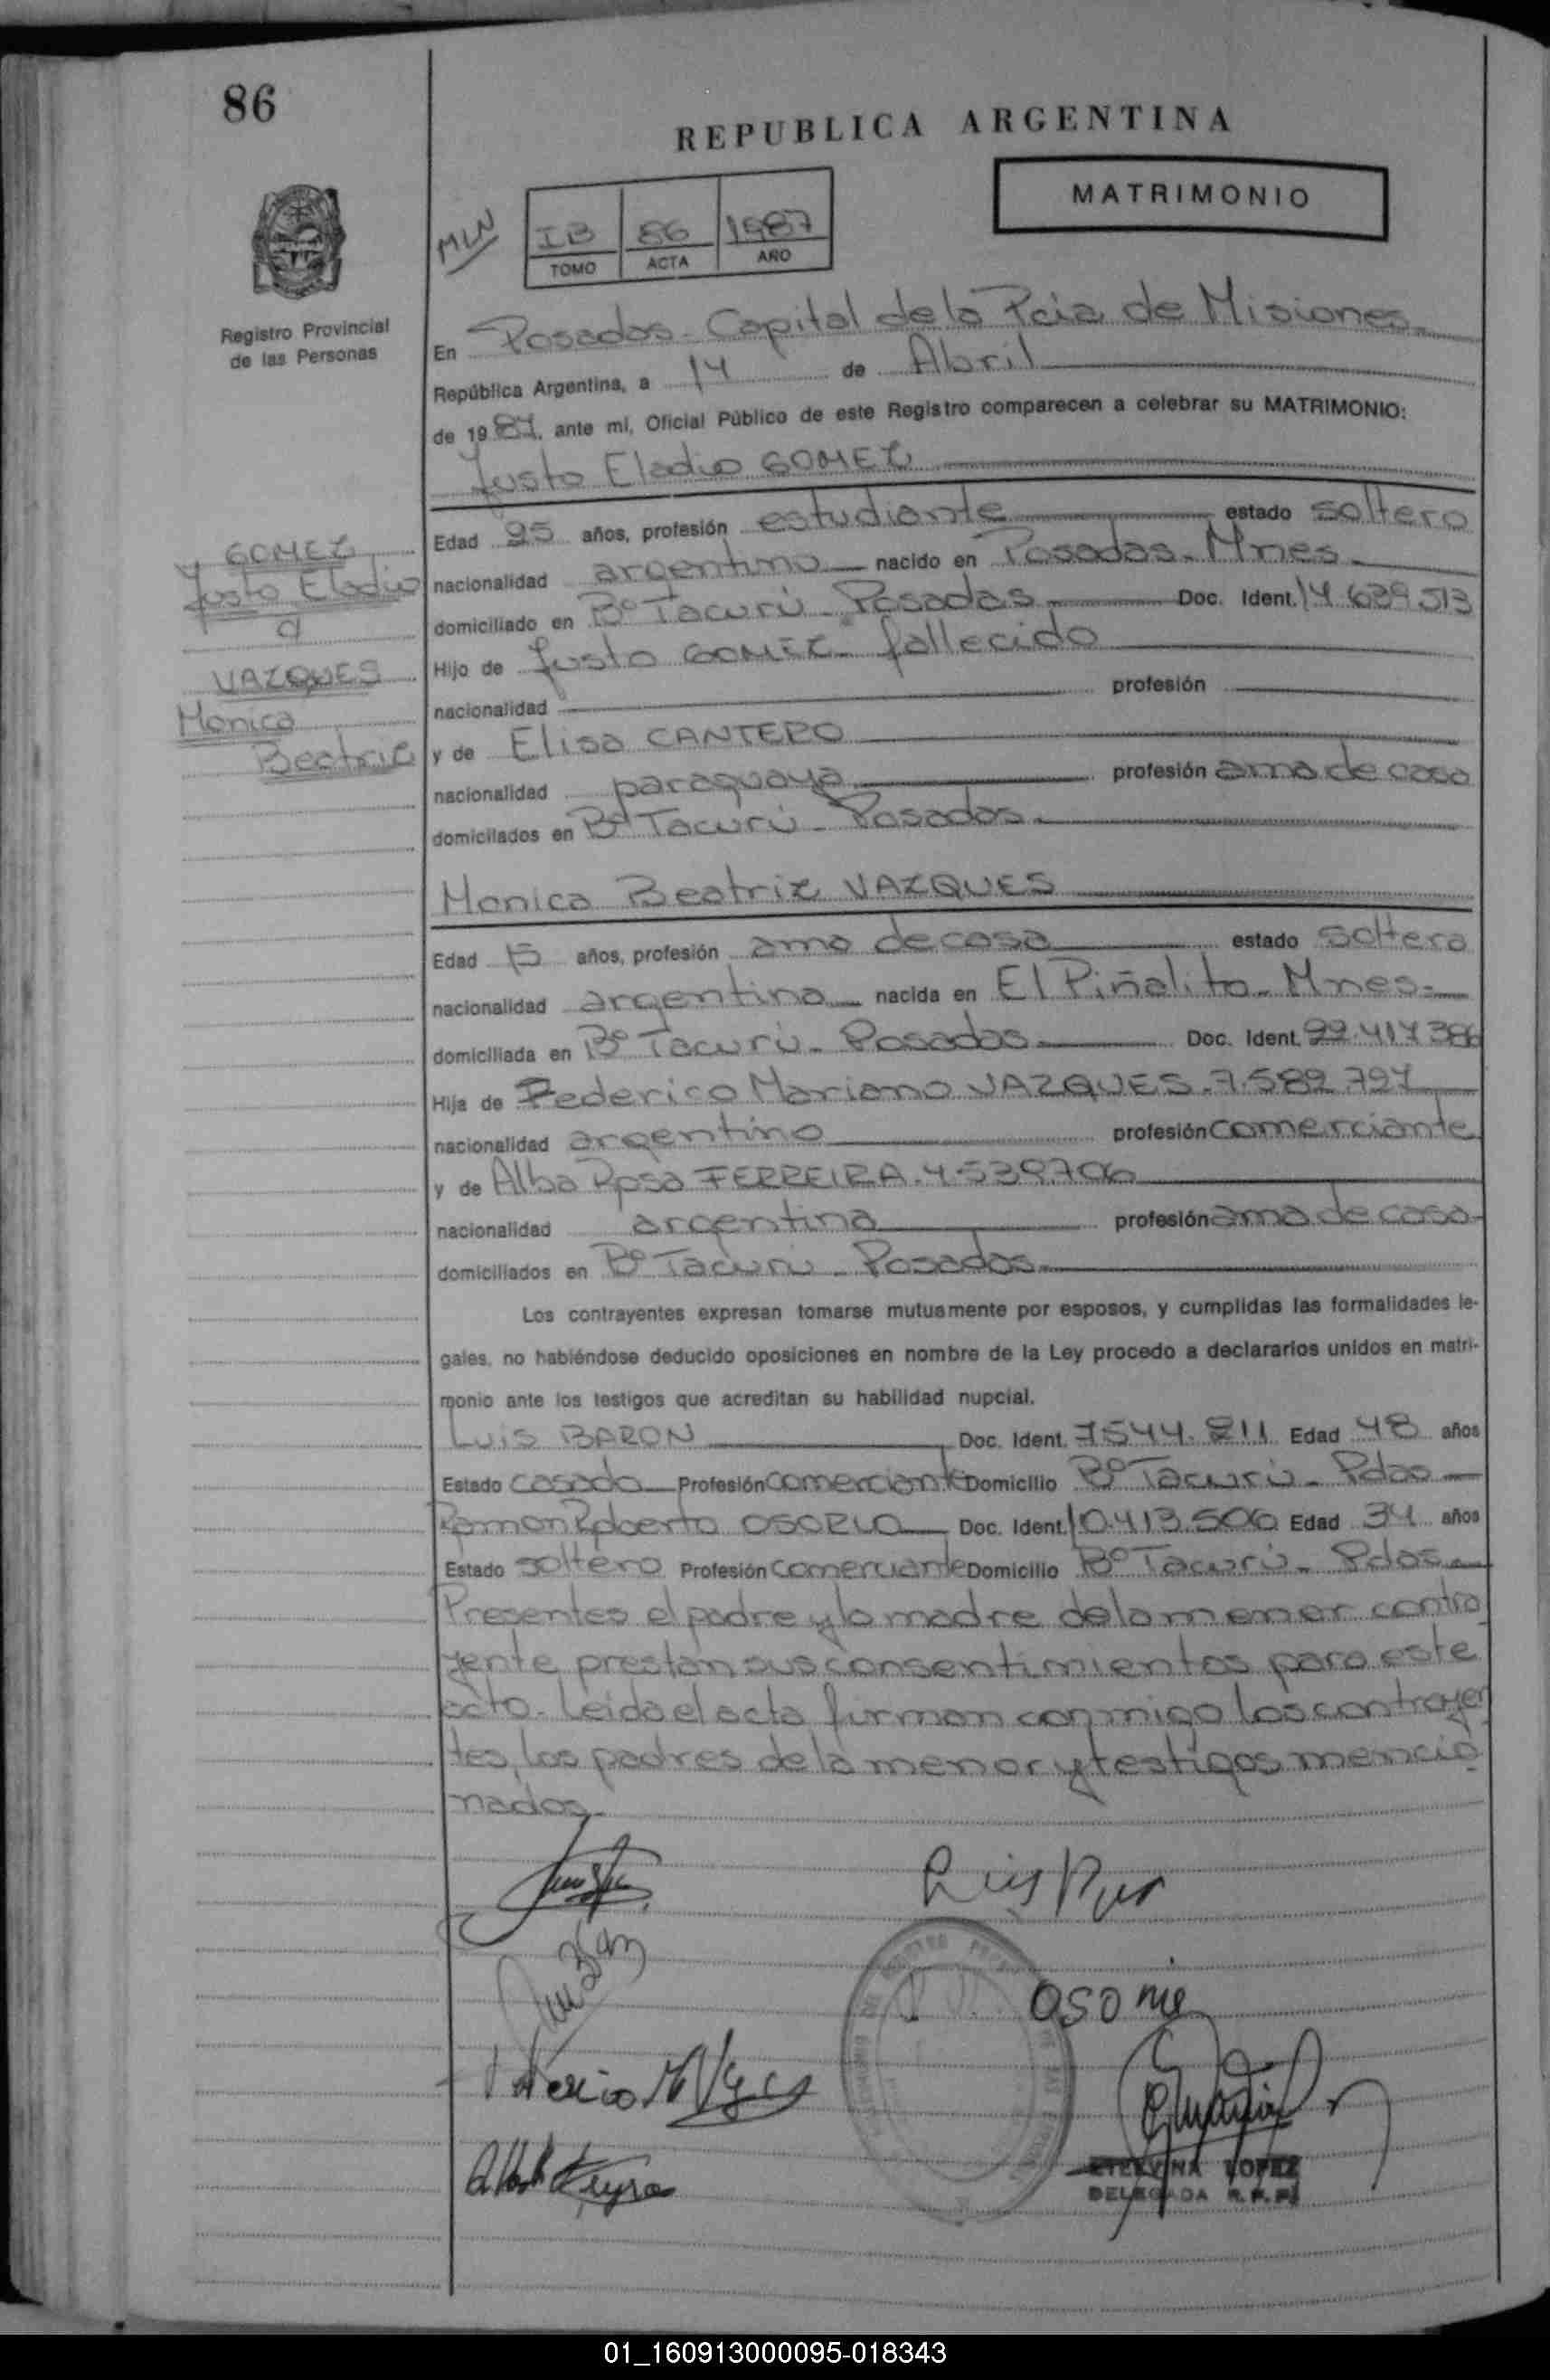 86
REPUBLICA ARGENTINA
MATRIMONIO
MLN
IB 86 1987
TOMO ACTA AÑO
Registro Provincial
de las Personas
En Posadas - Capital de la Pcia de Misiones
República Argentina, a 14 de Abril
de 1987, ante mi, Oficial Público de este Registro comparecen a celebrar su MATRIMONIO:
Justo Eladio GOMEZ
Edad 25 años, profesión estudiante estado soltero
nacionalidad argentino nacido en Posadas - Mnes
domiciliado en Bº Tacurú - Posadas Doc. Ident. 14.639.513
Hijo de Justo GOMEZ - fallecido
nacionalidad profesión
y de Elisa CANTERO
nacionalidad paraguaya profesión ama de casa
domiciliados en Bº Tacurú - Posadas
GOMEZ
Justo Eladio
VAZQUES
Monica
Beatriz
Monica Beatriz VAZQUES
Edad 15 años, profesión ama de casa estado soltera
nacionalidad argentina nacida en El Piñalito - Mnes.
domiciliada en Bº Tacurú - Posadas Doc. Ident. 22.417.386
Hija de Federico Mariano VAZQUES - 7.582.727
nacionalidad argentino profesión comerciante
y de Alba Rosa FERREIRA. 4.539.706
nacionalidad argentina profesión ama de casa
domiciliados en Bº Tacurú - Posadas
Los contrayentes expresan tomarse mutuamente por esposos, y cumplidas las formalidades le-
gales, no habiéndose deducido oposiciones en nombre de la Ley procedo a declararlos unidos en matri-
monio ante los testigos que acreditan su habilidad nupcial.
LUIS BARON Doc. Ident. 7544.211 Edad 48 años
Estado casado Profesión comerciante Domicilio Bº Tacurú - Pdas
Ramon Roberto OSORIO Doc. Ident. 10.413.506 Edad 34 años
Estado soltero Profesión comerciante Domicilio Bº Tacurú - Pdas
Presentes el padre y la madre de la menor contra
yente prestan sus consentimientos para este
acto. Leida el acta firman conmigo los contrayen
tes, los padres de la menor y testigos mencio
nados.
ETELVINA LOPEZ
DELEGADA R.P.P.
01_160913000095-018343